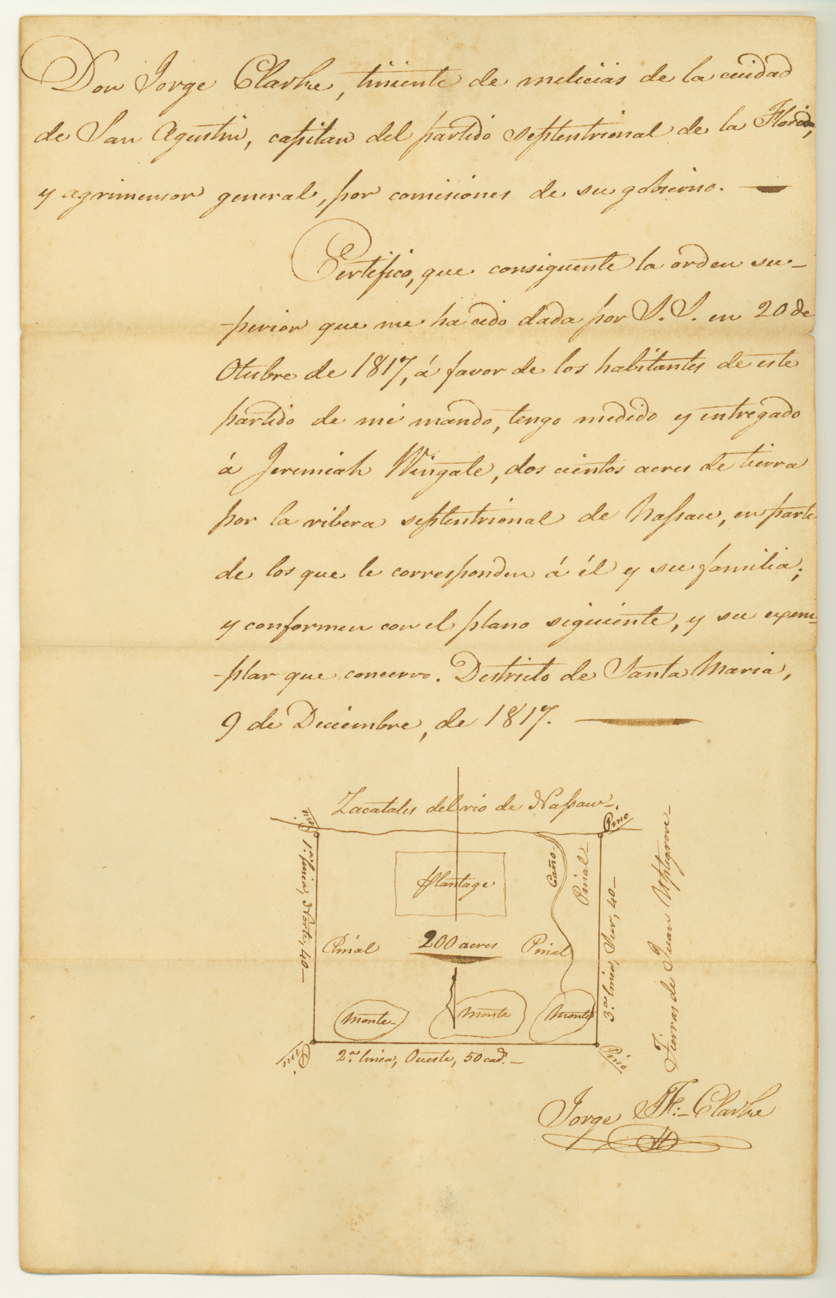 Don Jorge Clarke, tiniente de milicias de la ciudad
de San Agustin, capitan del partido septentrional de la Florida,
y agrimensor general, por comisiones de su gobierno. —
Certifico, que consiguente la orden su-
-perior que me ha cido dada por S. S. en 20 de
Otubre de 1817, á favor de los habitantes de este
partido de mi mando, tengo medido y entregado
á Jeremiah Wingate, dos cientos acres de tierra
por la ribera septentrional de Nassau, en parte
de los que le corresponden á él y su familia;
y conformen con el plano siguiente, y su exem-
-plar que concervo. Districto de Santa Maria,
9 de Diciembre, de 1817. —
Zacatales del rio de Nassau-.
Pino
Pino
1.ra linia, Norte, 40—
Plantage
Caño
Pinal
3.ra linia, Sur, 40—
Tierras de Juan Uptegrove—
Pinal
200 acres
Pinal
Monte
Monte
Monte
Pino
2.a linia, Oueste, 50 cad.—
Pino
Jorge J. F.:- Clarke